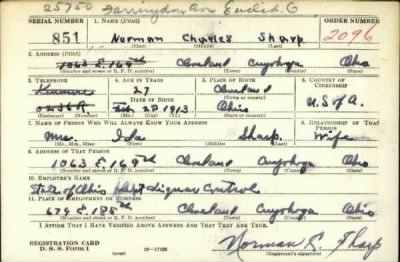 25750 Farringdon Ave Euclid, O
SERIAL NUMBER 1. NAME (Print) ORDER NUMBER
851 Norman Charles Sharp 2096
(First) (Middle) (Last)
2. ADDRESS (Print)
1063 E. 169th Cleveland Cuyahoga Ohio
(Number and street or R. F. D. number) (Town) (County) (State)
3. TELEPHONE 4. AGE IN YEARS 5. PLACE OF BIRTH 6. COUNTRY OF CITIZENSHIP
Kenmore 27 Cleveland
DATE OF BIRTH (Town or county)
Feb. 28 1913 Ohio U.S of A.
(Exchange) (Number) (Mo.) (Day) (Yr.) (State or country)
7. NAME OF PERSON WHO WILL ALWAYS KNOW YOUR ADDRESS 8. RELATIONSHIP OF THAT PERSON
Mrs. Ida Sharp. Wife
(Mr., Mrs., Miss) (First) (Middle) (Last)
9. ADDRESS OF THAT PERSON
1063 E. 169th Cleveland Cuyahoga Ohio
(Number and street or R. F. D. number) (Town) (County) (State)
10. EMPLOYER'S NAME
State of Ohio Dept Liquor Control
11. PLACE OF EMPLOYMENT OR BUSINESS
679 E. 185th Cleveland Cuyahoga Ohio
(Number and street or R. F. D. number) (Town) (County) (State)
I AFFIRM THAT I HAVE VERIFIED ABOVE ANSWERS AND THAT THEY ARE TRUE.
REGISTRATION CARD
D. S. S. Form 1 Norman C. Sharp
(Registrant's signature)